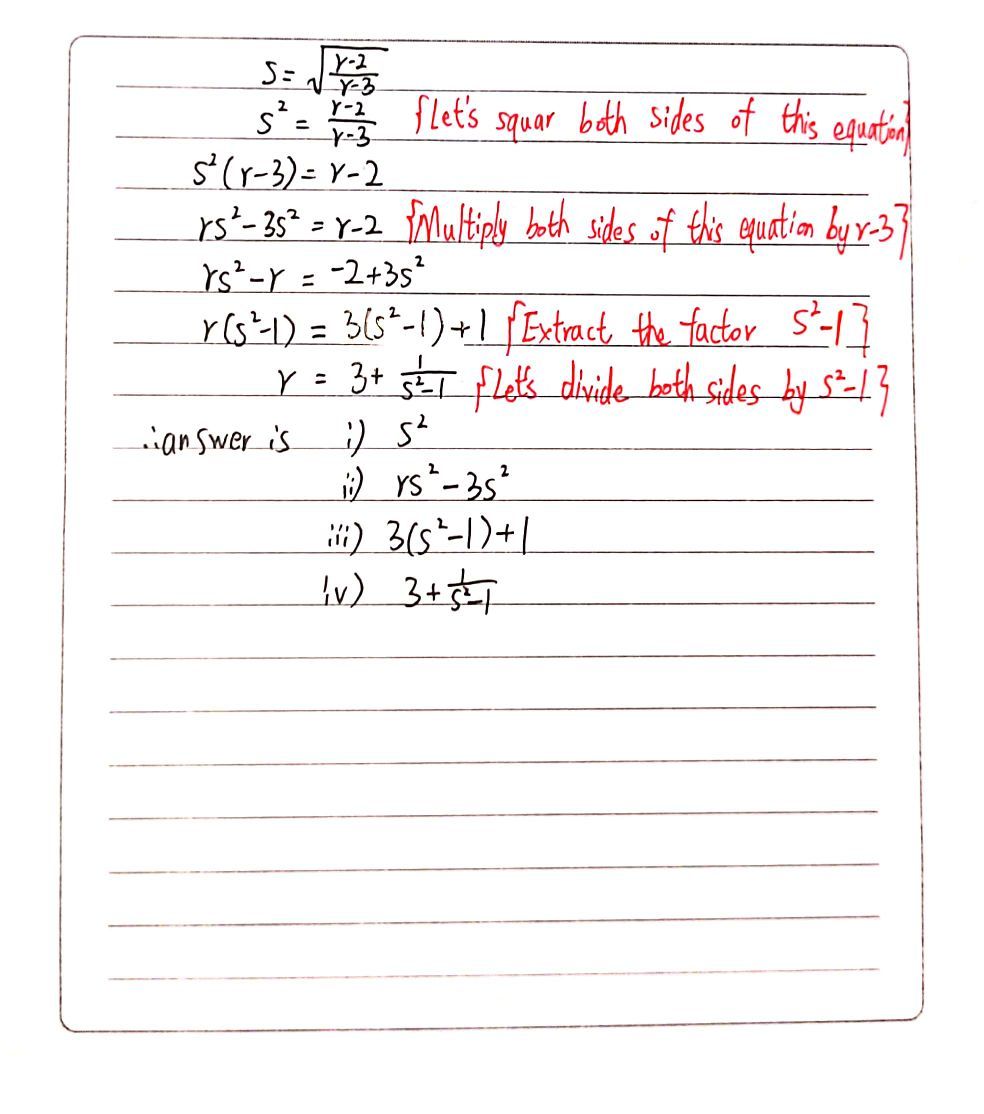 S = √(r-2)/(r-3)
s² = (r-2)/(r-3) {Let's squar both sides of this equation}
s²(r-3) = r-2
rs²-3s² = r-2 {Multiply both sides of this equation by r-3}
rs²-r = -2+3s²
r(s²-1) = 3(s²-1)+1 {Extract the factor S²-1}
r = 3+ 1/(s²-1) {Let's divide both sides by s²-1}
∴answer is i) s²
ii) rs²-3s²
iii) 3(s²-1)+1
iv) 3+ 1/(s²-1)